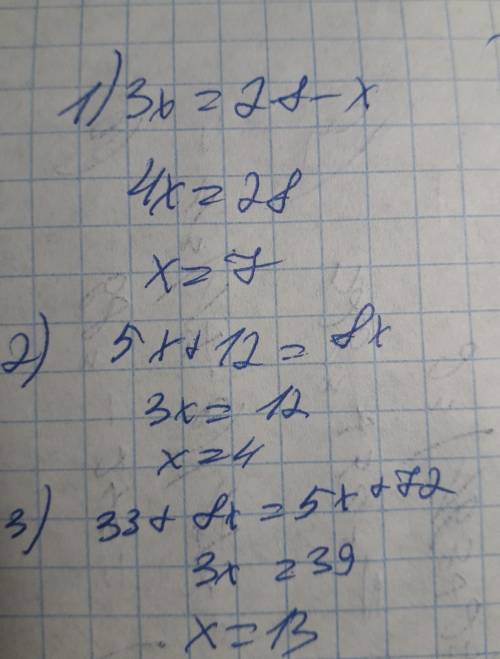 1) 3x = 28 - x
4x = 28
x = 7
2) 5x + 12 = 8x
3x = 12
x = 4
3) 33 + 8x = 5x + 72
3x = 39
x = 13